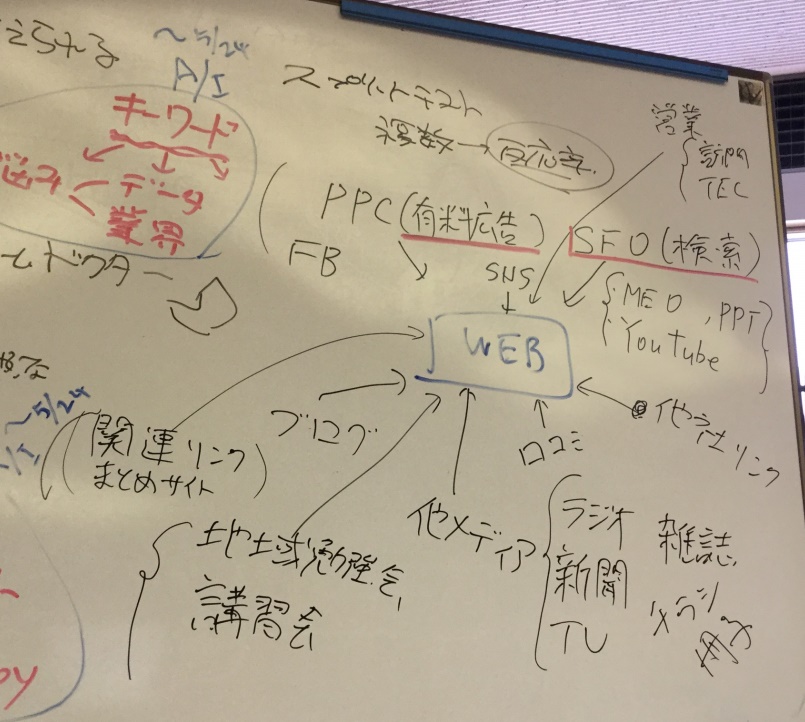 えられる
~5/24
A/I
スプリットテスト
営業
キーワード
複数→反応率
訪問
TEL
悩み
データ
業界
PPC(有料広告)
SEO(検索)
FB
SNS
ドクター
MEO, PPT
YouTube
WEB
~5/24
関連リンク
まとめサイト
ブログ
口コミ
他社リンク
地域勉強会
講習会
他メディア
ラジオ
雑誌
新聞
TV